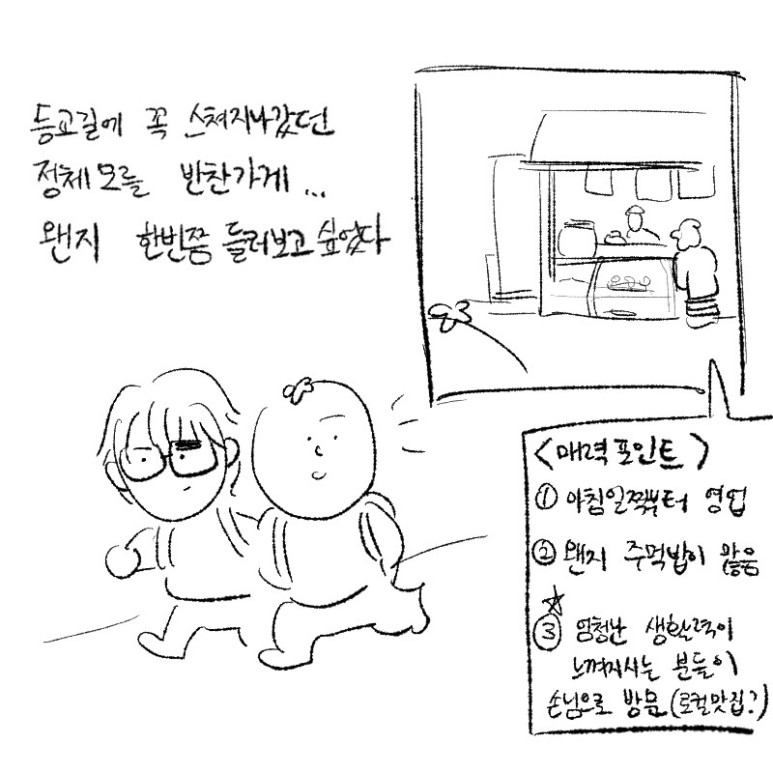 등교길에 꼭 스쳐지나갔던
정체모를 반찬가게...
왠지 한번쯤 들러보고 싶었다
<매력포인트>
① 아침일찍부터 영업
② 왠지 주먹밥이 많음
☆
③ 엄청난 생활력이
느껴지시는 분들이
손님으로 방문(로컬맛집?)